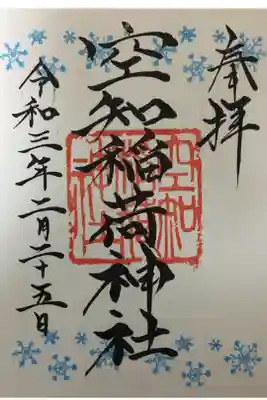 奉拝
空知稲荷神社
令和三年二月二十五日